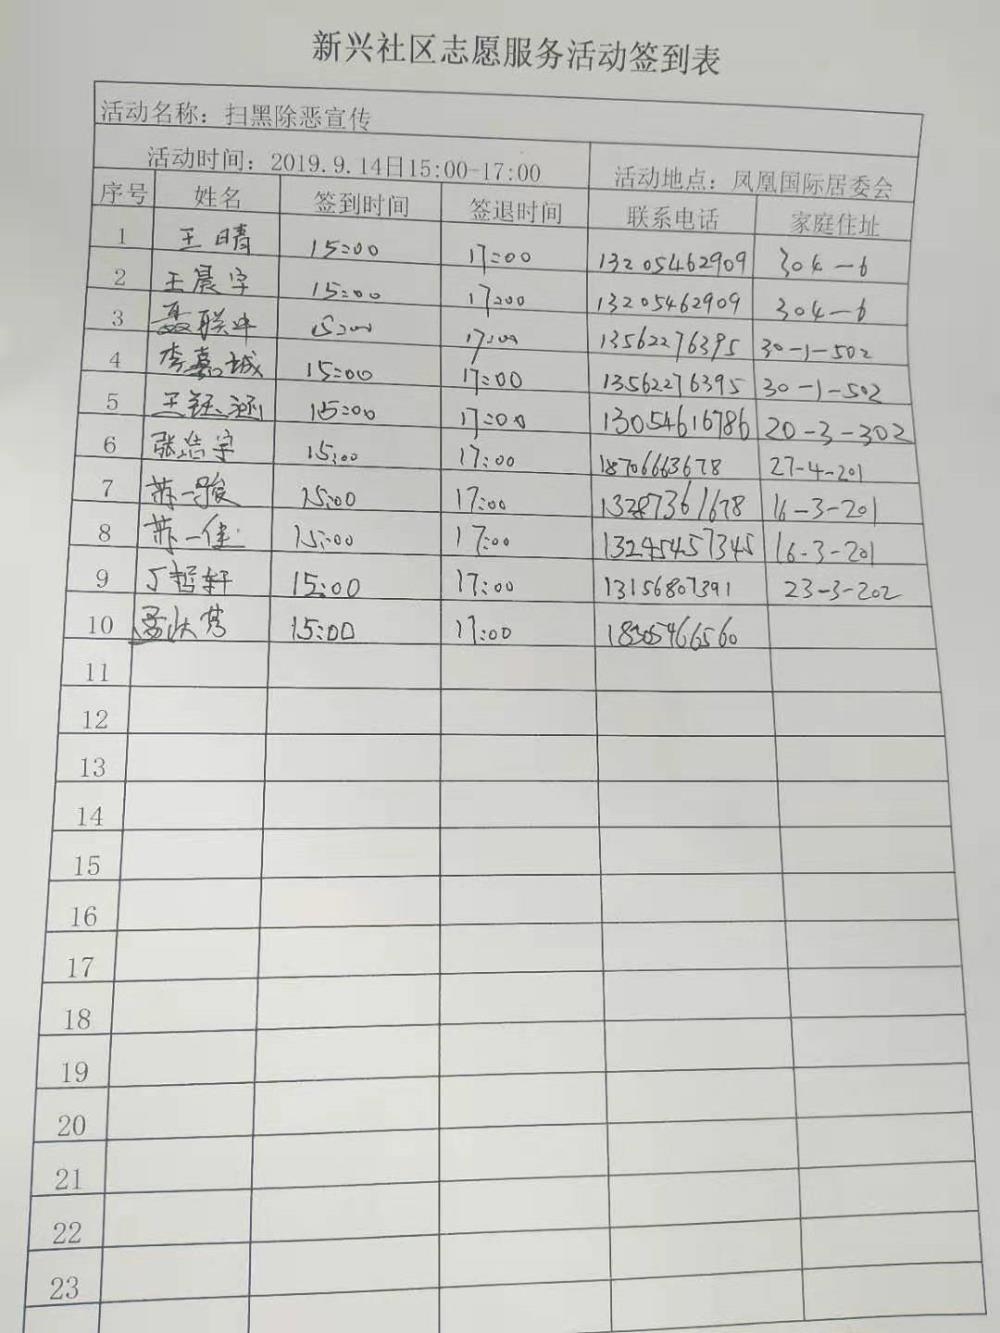 新兴社区志愿服务活动签到表
活动名称：扫黑除恶宣传
活动时间：2019.9.14日15:00-17:00 活动地点：凤凰国际居委会
序号 姓名 签到时间 签退时间 联系电话 家庭住址
1 王晴 15:00 17:00 13205462909 304-6
2 王晨宇 15:00 17:00 13205462909 304-6
3 聂联冲 15:00 17:00 13562276395 30-1-502
4 李嘉诚 15:00 17:00 13562276395 30-1-502
5 王钰涵 15:00 17:00 13054616786 20-3-302
6 张浩宇 15:00 17:00 18706663678 27-4-201
7 苏一骏 15:00 17:00 13287361678 16-3-201
8 苏一佳 15:00 17:00 13295457345 16-3-201
9 丁哲轩 15:00 17:00 13156807391 23-3-202
10 15:00 17:00 18305466560
11
12
13
14
15
16
17
18
19
20
21
22
23